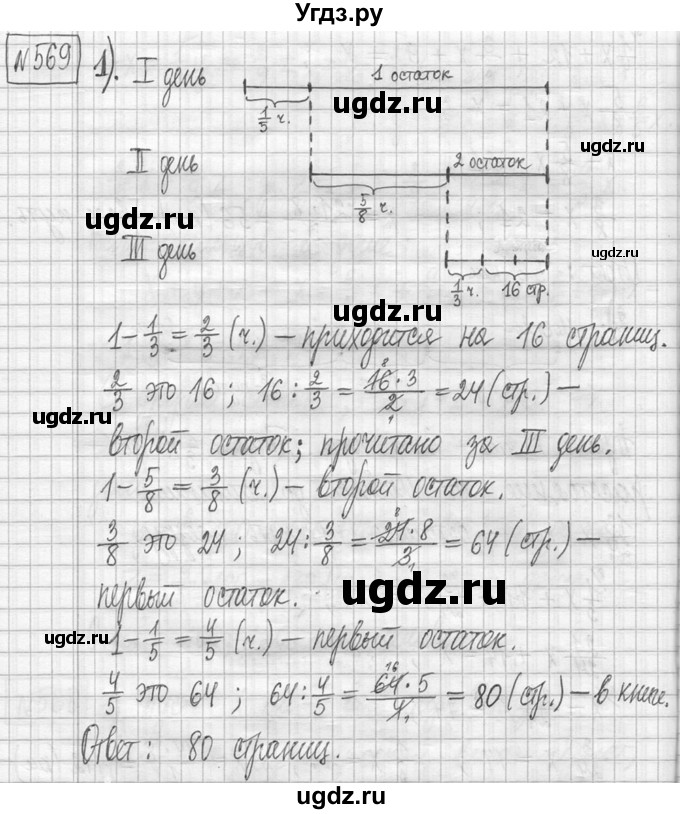 Угдз.ру
№569 1). I день 1 остаток
1/5 ч.
ugdz.ru
ugdz.ru
II день 2 остаток
ugdz.ru
5/8 ч.
ugdz.ru
III день
ugdz.ru
1/3 ч. 16 стр.
1 - 1/3 = 2/3 (ч.) — приходится на 16 страниц.
ugdz.ru
2/3 это 16 ; 16 : 2/3 = 16 · 3 / 2 = 24 (стр.) —
ugdz.ru
второй остаток; прочитано за III день.
1 - 5/8 = 3/8 (ч.) — второй остаток.
ugdz.ru
3/8 это 24 ; 24 : 3/8 = 24 · 8 / 3 = 64 (стр.) —
первый остаток.
ugdz.ru
1 - 1/5 = 4/5 (ч.) — первый остаток.
ugdz.ru
4/5 это 64 ; 64 : 4/5 = 64 · 5 / 4 = 80 (стр.) — в книге.
Ответ : 80 страниц.
ugdz.ru
ugdz.ru